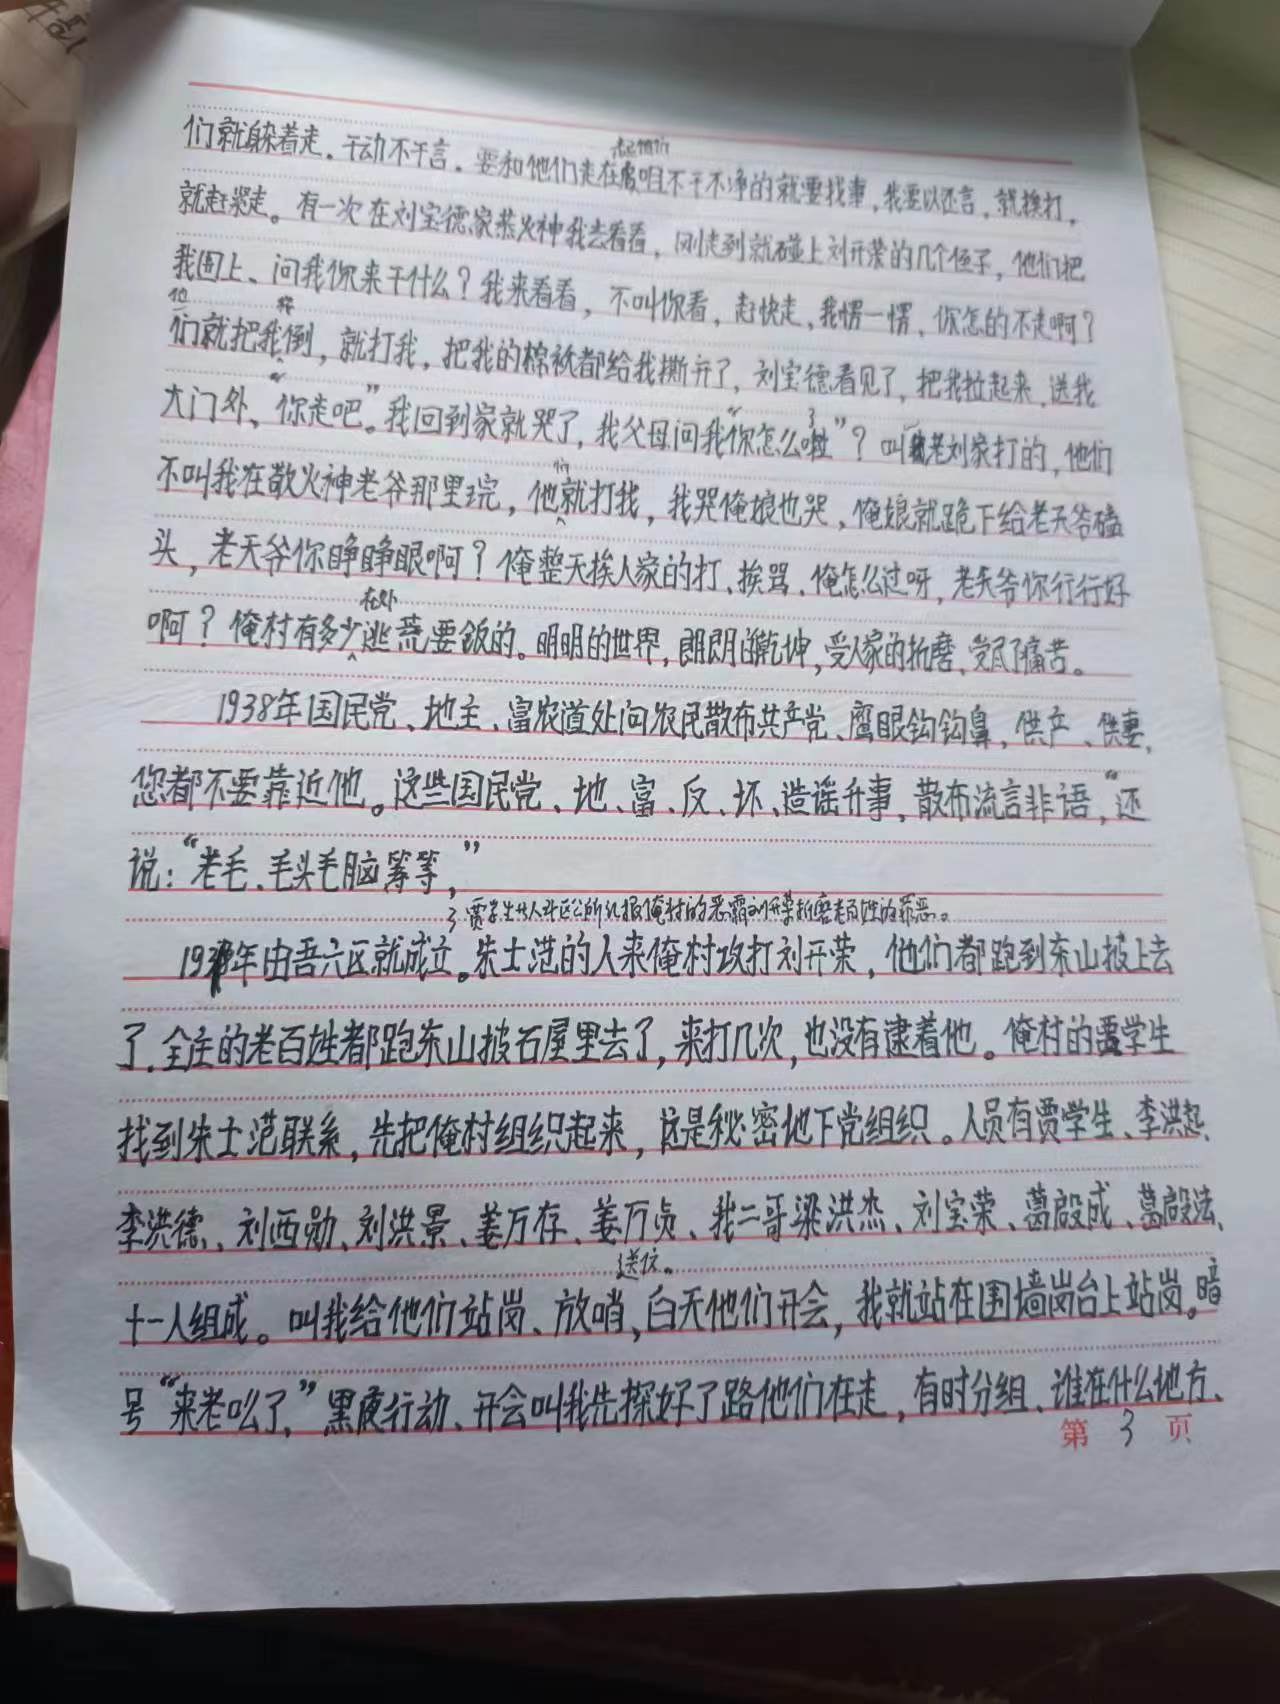 们就躲着走。干动不干言。要和他们走在咀不干不净的就要找事,我要以还言,就挨打,
就赶紧走。有一次在刘宝德家恭火神我去看看,刚走到就碰上刘开荣的几个侄子,他们把
我围上、问我你来干什么?我来看看,不叫你看,赶快走,我愣一愣,你怎的不走啊?
他
们就把我倒,就打我,把我的棉袄都给我撕开了,刘宝德看见了,把我拉起来,送我
大门外、“你走吧”。我回到家就哭了,我父母问我“你怎么啦”?叫老刘家打的,他们
不叫我在敬火神老爷那里玩,他们就打我,我哭俺娘也哭,俺娘就跪下给老天爷磕
头,老天爷你睁睁眼啊?俺整天挨人家的打、挨骂、俺怎么过呀,老天爷你行行好
在外
啊?俺村有多少逃荒要饭的。明明的世界,朗朗的乾坤,受人家的折磨、受尽了痛苦。
1938年国民党、地主、富农道处问农民散布共产党、鹰眼钩钩鼻,供产、供妻,
您都不要靠近他。这些国民党、地、富、反、坏、造谣升事,散布流言非语,“还
说:“老毛、毛头毛脑等等,”
贾学生等人许区公所汇报俺村的恶霸刘开荣折磨老百姓的罪恶。
19年由吾六区就成立。朱士范的人来俺村攻打刘开荣,他们都跑到东山披上去
了.全庄的老百姓都跑东山披石屋里去了,来打几次,也没有逮着他。俺村的贾学生
找到朱士范联系,先把俺村组织起来,这是秘密地下党组织。人员有贾学生、李洪起、
李洪德、刘西勋、刘洪景、姜万存、姜万贞、我二哥梁洪杰、刘宝荣、葛啟成、葛啟法、
送信。
十一人组成。叫我给他们站岗、放哨,白天他们开会,我就站在围墙岗台上站岗。暗
号“来老么了,”黑夜行动、开会叫我先探好了路他们在走,有时分组、谁在什么地方、
第 3 页